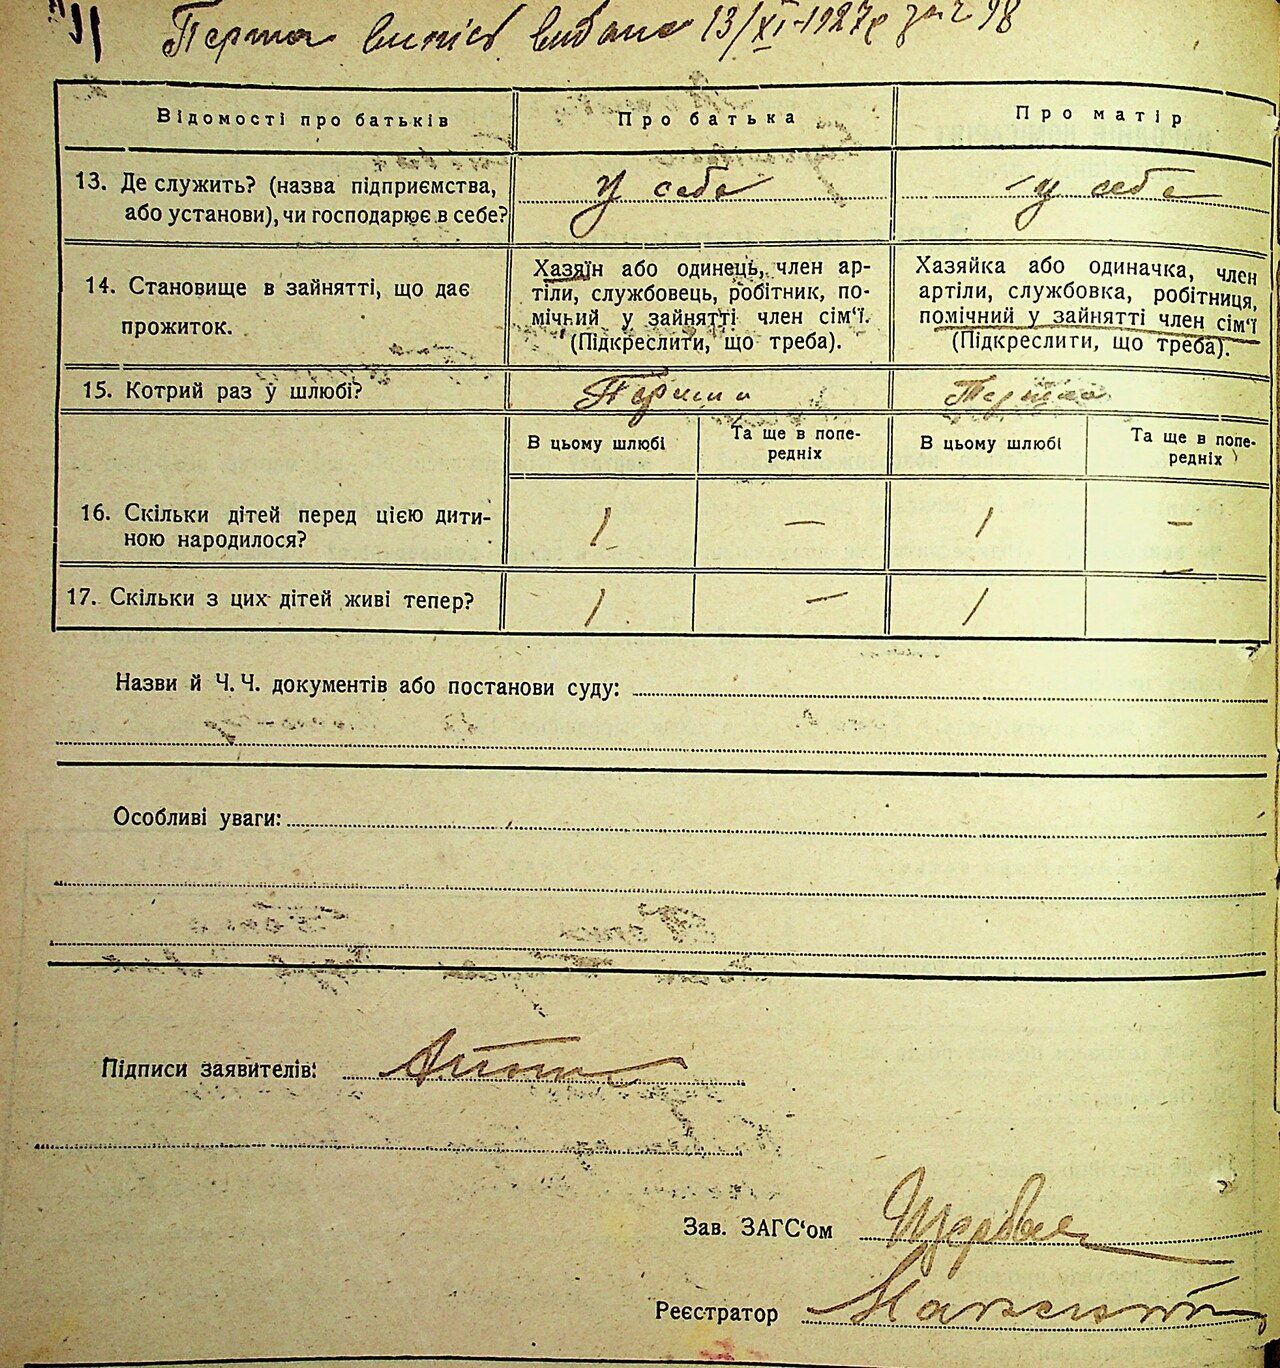 Перша випись видана 13/XI-1927р за ч 98
Відомості про батьків
Про батька
Про матір
13. Де служить? (назва підприємства,
або установи), чи господарює в себе?
у себе
у себе
14. Становище в зайнятті, що дає
прожиток.
Хазяїн або одинець, член ар-
тіли, службовець, робітник, по-
мічний у зайнятті член сім‘ї.
(Підкреслити, що треба).
Хазяйка або одиначка, член
артіли, службовка, робітниця,
помічний у зайнятті член сім‘ї
(Підкреслити, що треба).
15. Котрий раз у шлюбі?
Перший
Перша
В цьому шлюбі
Та ще в попе-
редніх
В цьому шлюбі
Та ще в попе-
редніх
16. Скільки дітей перед цією дити-
ною народилося?
1 — 1 —
17. Скільки з цих дітей живі тепер?
1 — 1 —
Назви й Ч. Ч. документів або постанови суду:
Особливі уваги:
Підписи заявителів:
Зав. ЗАГС‘ом
Реєстратор